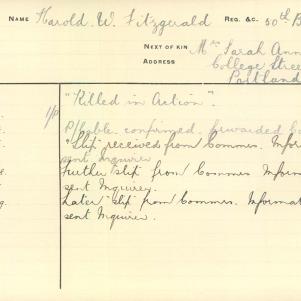 NAME Harold. W. Fitzgerald REG. &C. 50th B
NEXT OF KIN Mrs Sarah Ann
ADDRESS College Stree
Portland
"Killed in Action".
P/Cable confirmed. forwarded
"Slip" received from Commrs. Inform
sent Inquirer
Further "slip" from Commrs Inform
sent Inquirer.
Later "slip" from Commrs. Informat
sent Inquirer.